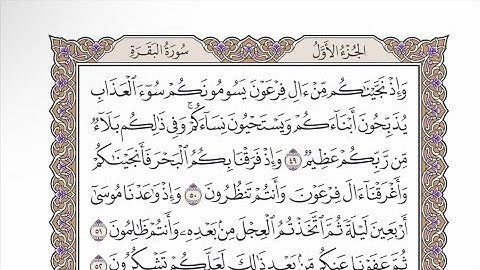 الجُزْءُ الأَوَّلُ
سُورَةُ البَقَرَةِ
وَإِذْ نَجَّيْنَٰكُم مِّنْ ءَالِ فِرْعَوْنَ يَسُومُونَكُمْ سُوٓءَ ٱلْعَذَابِ
يُذَبِّحُونَ أَبْنَآءَكُمْ وَيَسْتَحْيُونَ نِسَآءَكُمْ ۚ وَفِى ذَٰلِكُم بَلَآءٌ
مِّن رَّبِّكُمْ عَظِيمٌ ٤٩ وَإِذْ فَرَقْنَا بِكُمُ ٱلْبَحْرَ فَأَنجَيْنَٰكُمْ
وَأَغْرَقْنَآ ءَالَ فِرْعَوْنَ وَأَنتُمْ تَنظُرُونَ ٥٠ وَإِذْ وَٰعَدْنَا مُوسَىٰٓ
أَرْبَعِينَ لَيْلَةً ثُمَّ ٱتَّخَذْتُمُ ٱلْعِجْلَ مِنۢ بَعْدِهِۦ وَأَنتُمْ ظَٰلِمُونَ ٥١
ثُمَّ عَفَوْنَا عَنكُم مِّنۢ بَعْدِ ذَٰلِكَ لَعَلَّكُمْ تَشْكُرُونَ ٥٢